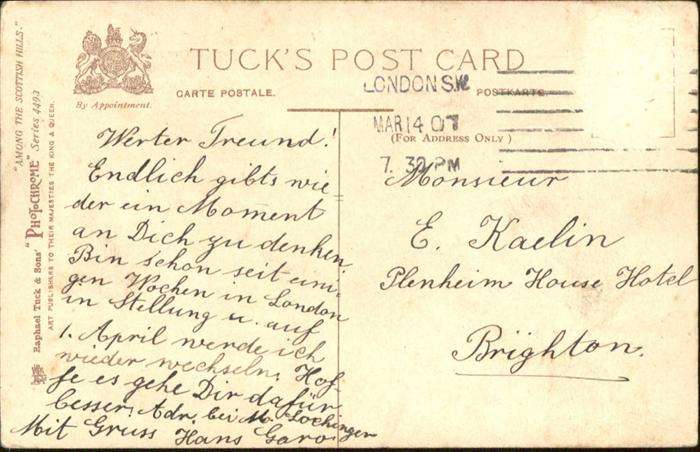 "AMONG THE SCOTTISH HILLS."
Raphael Tuck & Sons' "PHOTOCHROME" Series 4493
ART PUBLISHERS TO THEIR MAJESTIES THE KING & QUEEN.
By Appointment.
TUCK'S POST CARD
CARTE POSTALE.
POSTKARTE.
(FOR ADDRESS ONLY)
LONDON S.W
MAR 14 07
7. 30 PM
Werter Freund!
Endlich gibts wie
der ein Moment
an Dich zu denken.
Bin schon seit eini-
gen Wochen in London
in Stellung u. auf
1. April werde ich
wieder wechseln, Hof
fe es gehe Dir dafür
besser, Adr. bei
Mit Gruss Hans
Monsieur
E. Kaelin
Plenheim House Hotel
Brighton.